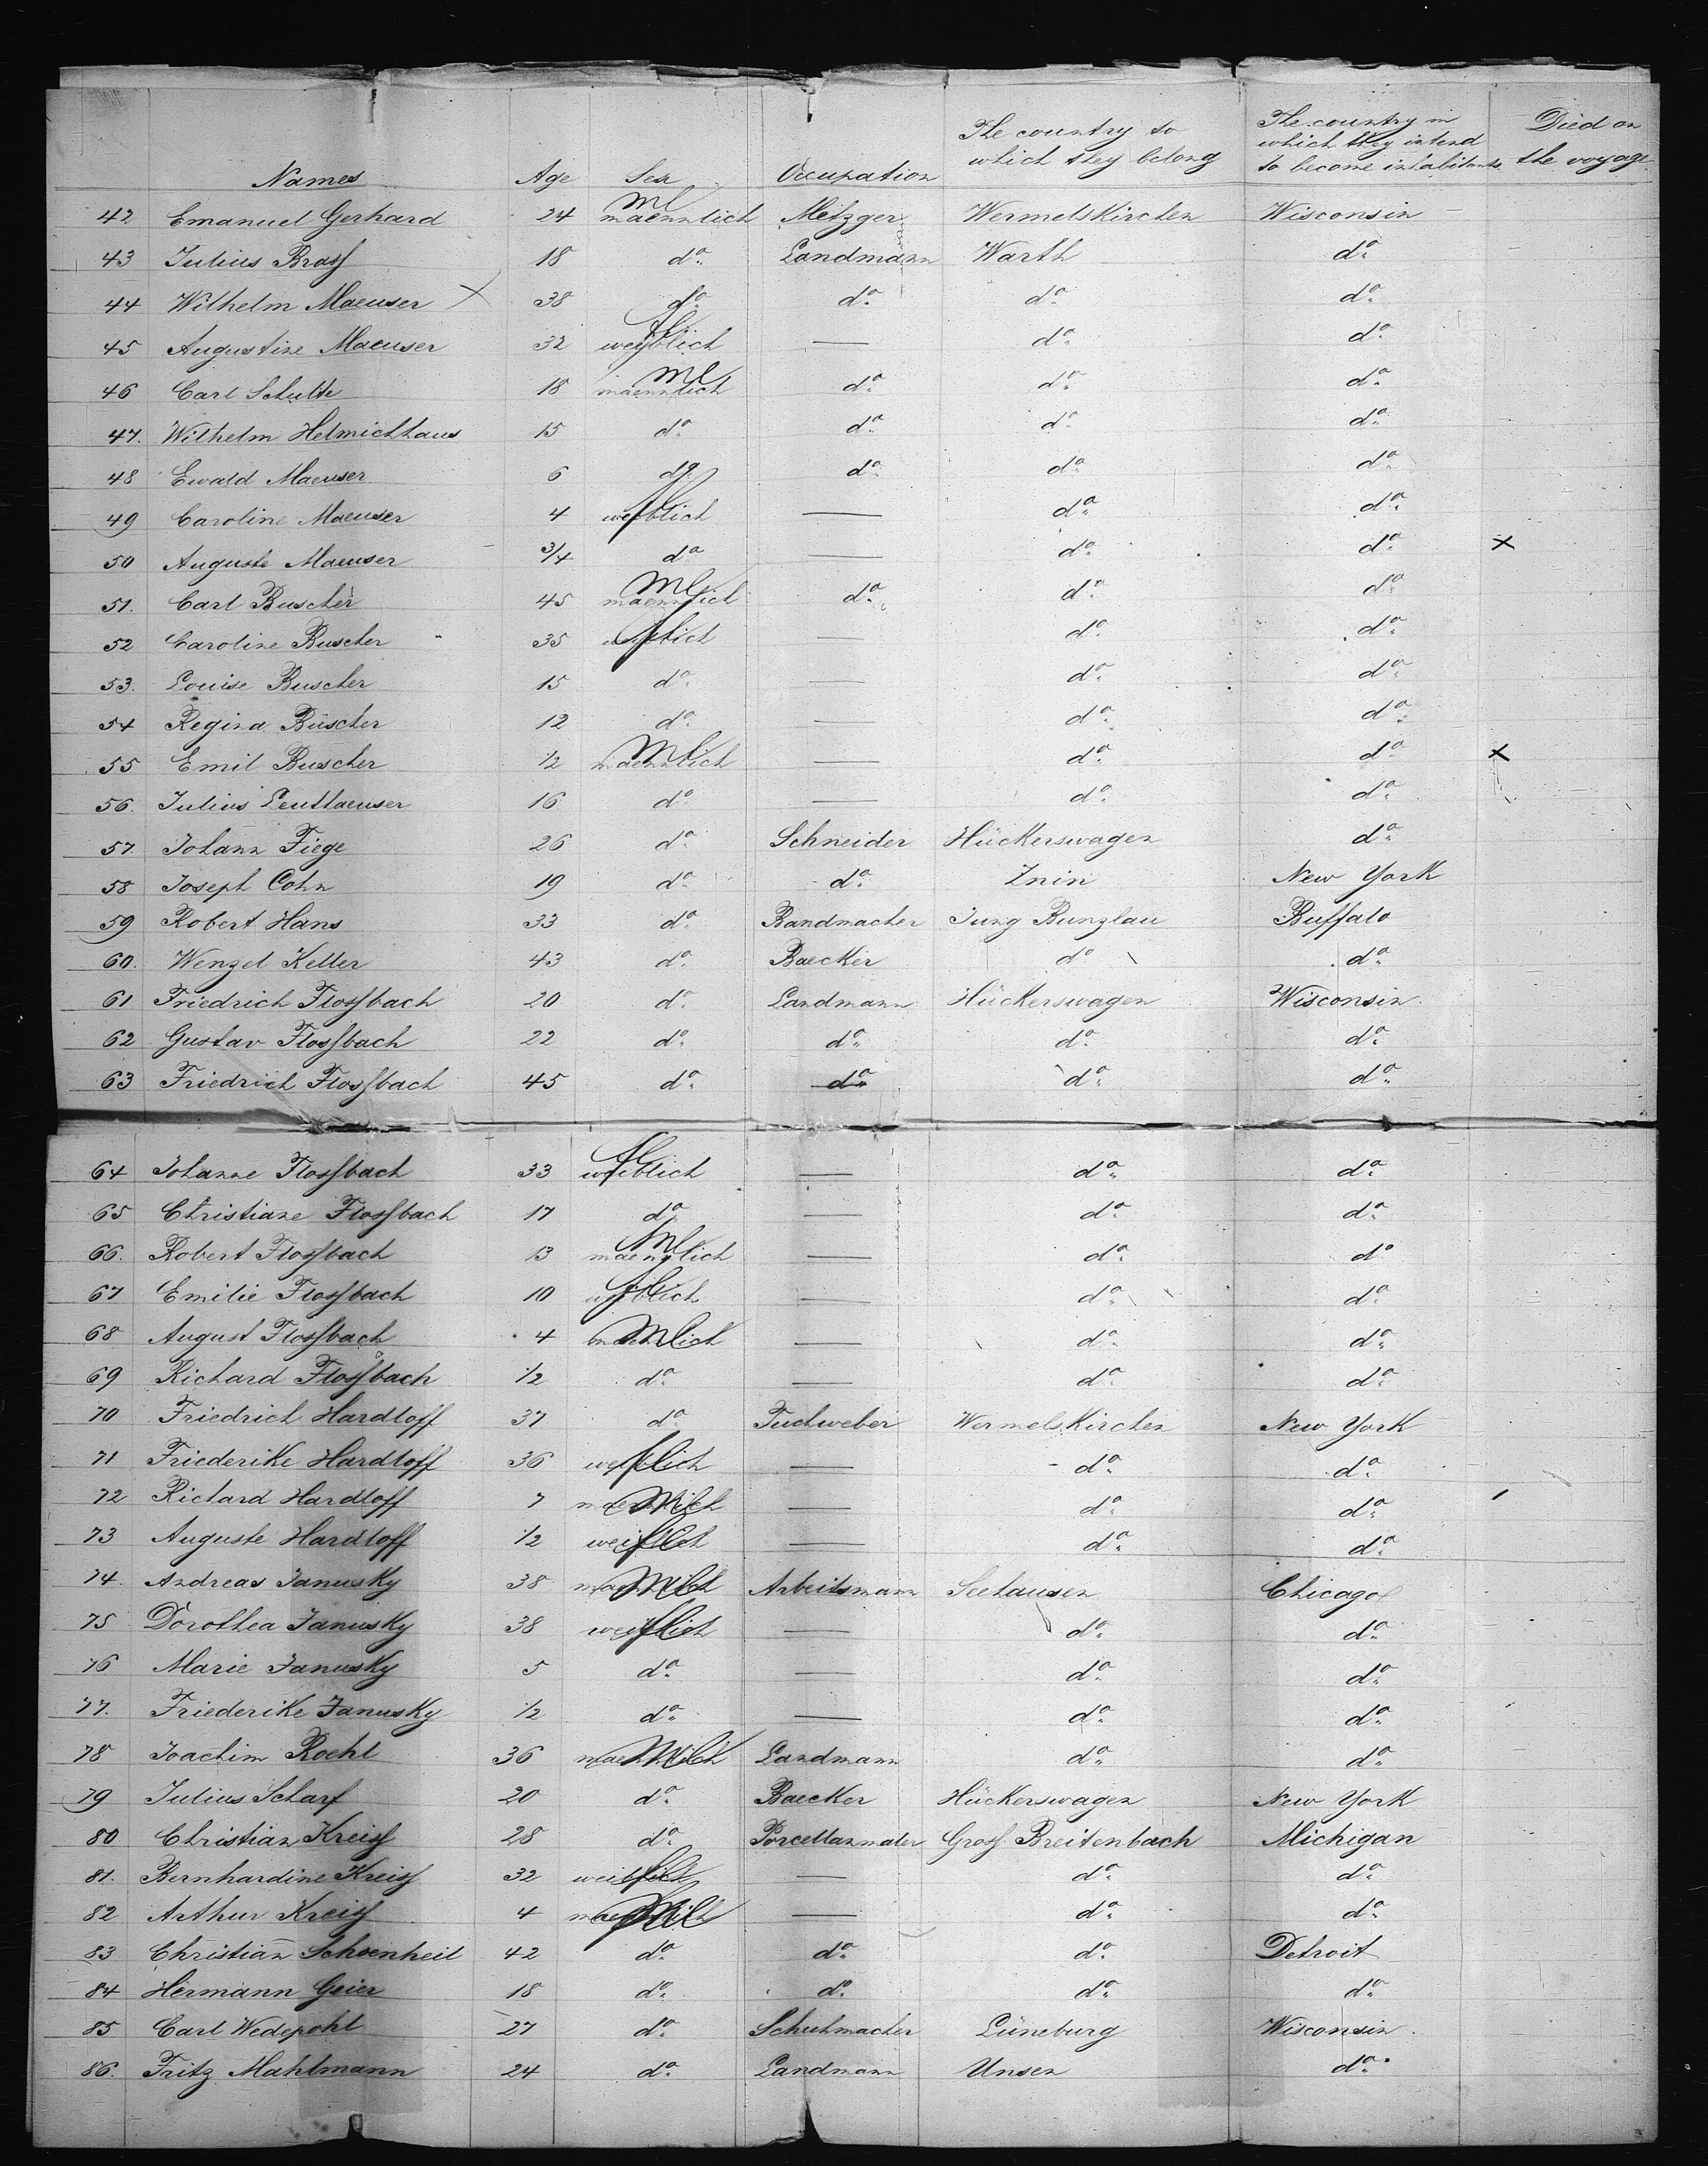 Names Age Sex Occupation The country to which they belong The country in which they intend to become inhabitants Died on the voyage
42 Emanuel Gerhard 24 maennlich Metzger Wermelskirchen Wisconsin
43 Julius Brass 18 do. Landmann Warth do.
44 Wilhelm Maeuser X 38 do. do. do. do.
45 Augustine Maeuser 32 weiblich — do. do.
46 Carl Schulte 18 maennlich do. do. do.
47. Wilhelm Helmichhaus 15 do. do. do. do.
48 Ewald Maeuser 6 do. do. do. do.
49 Caroline Maeuser 4 weiblich — do. do.
50 Auguste Maeuser 3/4 do — do. do. x
51. Carl Buscher 45 maennlich do. do. do.
52 Caroline Buscher 35 weiblich — do. do.
53. Louise Buscher 15 do. — do. do.
54 Regina Büscher 12 do. — do. do.
55 Emil Buscher 1/2 maennlich — do. do. x
56. Julius Leuthaeuser 16 do. — do. do.
57 Johann Fiege 26 do. Schneider Hückerswagen do.
58 Joseph Cohn 19 do. do. Znin New York
59 Robert Hans 33 do. Bandmacher Jung Bunzlau Buffalo
60. Wenzel Keller 43 do. Baecker do do.
61 Friedrich Flossbach 20 do. Landmann Hückerswagen Wisconsin
62 Gustav Flossbach 22 do. do. do. do.
63 Friedrich Flossbach 45 do. do. do. do.
64 Johanne Flossbach 33 weiblich — do. do.
65 Christiane Flossbach 17 do. — do. do.
66. Robert Flossbach 13 maennlich — do. do
67 Emilie Flossbach 10 weiblich — do. do.
68 August Flossbach 4 maennlich — do. do.
69 Richard Flossbach 1/2 do. — do. do.
70 Friedrich Hardtoff 37 do. Tuchweber Wermelskirchen New York
71 Friederike Hardtoff 36 weiblich — do. do.
72 Richard Hardtoff 7 maennlich — do. do.
73 Auguste Hardtoff 1/2 weiblich — do. do.
74. Andreas Janusky 38 maennlich Arbeitsmann Seehausen Chicago
75 Dorothea Janusky 38 weiblich — do. do.
76 Marie Janusky 5 do. — do. do.
77. Friederike Janusky 1/2 do. — do. do.
78 Joachim Roehl 36 maennlich Landmann do. do.
79 Julius Scharf 20 do. Baecker Hückerswagen New York
80 Christian Kreiss 28 do. Porcellanmaler Gross Breitenbach Michigan
81. Bernhardine Kreiss 32 weiblich — do. do.
82 Arthur Kreiss 4 maennlich — do. do.
83 Christian Schoenheit 42 do. do. do. Detroit
84 Hermann Geier 18 do. do. do. do.
85 Carl Wedepohl 27 do. Schuhmacher Lüneburg Wisconsin.
86. Fritz Mahlmann 24 do. Landmann Unsen do.